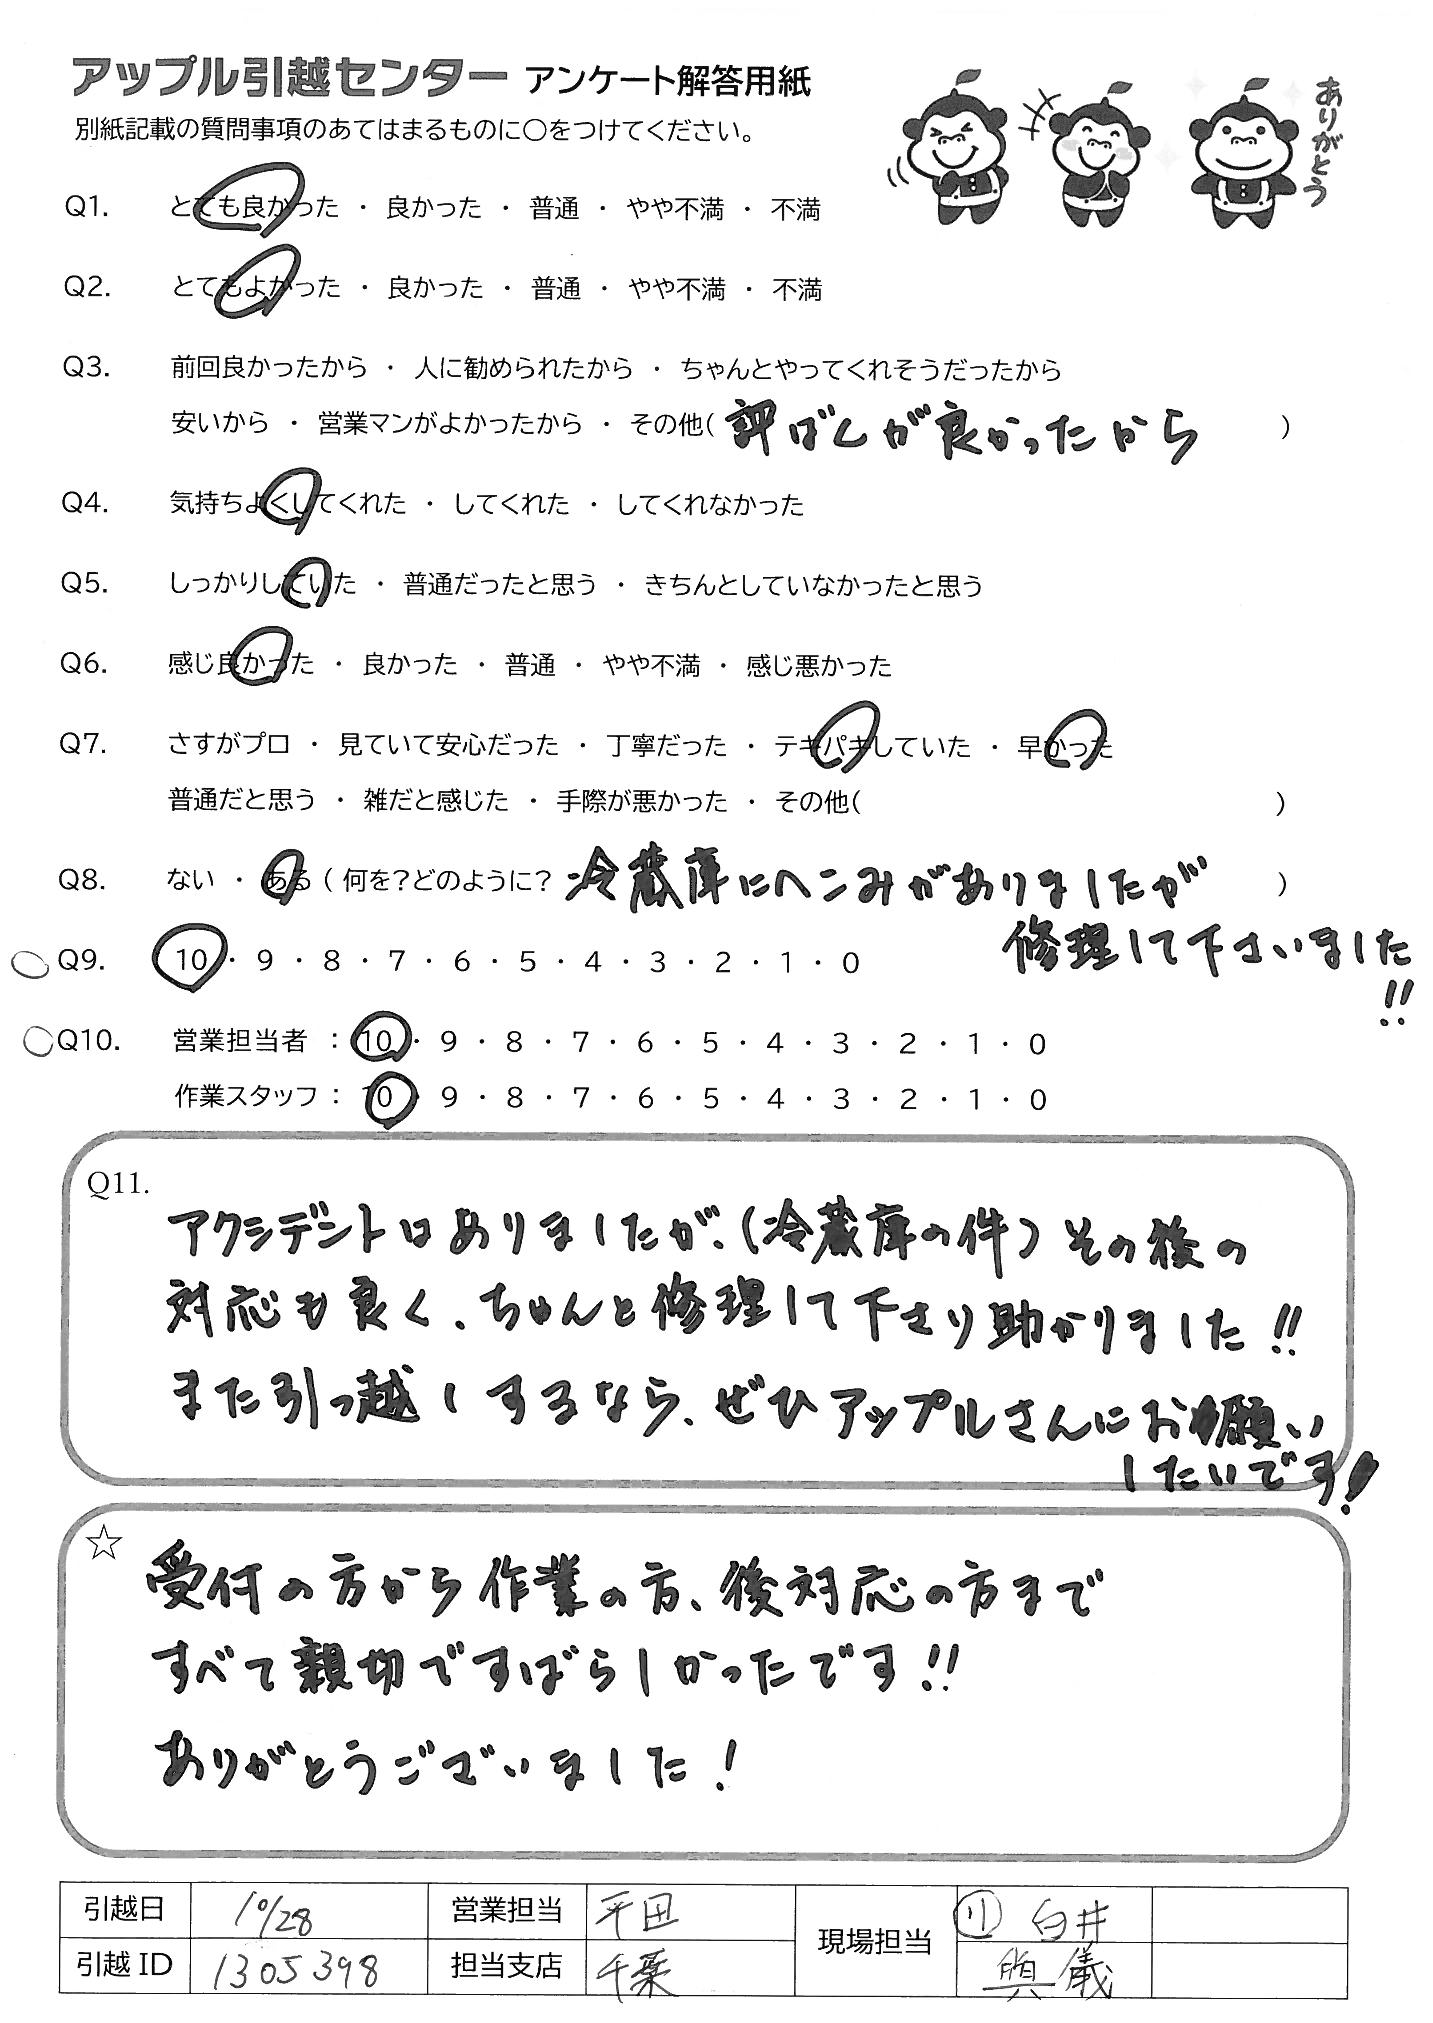 アップル引越センター アンケート解答用紙
別紙記載の質問事項のあてはまるものに○をつけてください。
ありがとう
Q1. とても良かった ・ 良かった ・ 普通 ・ やや不満 ・ 不満
Q2. とてもよかった ・ 良かった ・ 普通 ・ やや不満 ・ 不満
Q3. 前回良かったから ・ 人に勧められたから ・ ちゃんとやってくれそうだったから
安いから ・ 営業マンがよかったから ・ その他( 評ばんが良かったから )
Q4. 気持ちよくしてくれた ・ してくれた ・ してくれなかった
Q5. しっかりしていた ・ 普通だったと思う ・ きちんとしていなかったと思う
Q6. 感じ良かった ・ 良かった ・ 普通 ・ やや不満 ・ 感じ悪かった
Q7. さすがプロ ・ 見ていて安心だった ・ 丁寧だった ・ テキパキしていた ・ 早かった
普通だと思う ・ 雑だと感じた ・ 手際が悪かった ・ その他( )
Q8. ない ・ ある ( 何を？どのように？ 冷蔵庫にヘコみがありましたが )
修理して下さいました
!!
Q9. 10 ・ 9 ・ 8 ・ 7 ・ 6 ・ 5 ・ 4 ・ 3 ・ 2 ・ 1 ・ 0
Q10. 営業担当者 ： 10 ・ 9 ・ 8 ・ 7 ・ 6 ・ 5 ・ 4 ・ 3 ・ 2 ・ 1 ・ 0
作業スタッフ： 10 ・ 9 ・ 8 ・ 7 ・ 6 ・ 5 ・ 4 ・ 3 ・ 2 ・ 1 ・ 0
Q11.
アクシデントはありましたが、(冷蔵庫の件) その後の
対応も良く、ちゃんと修理して下さり助かりました!!
また引っ越しするなら、ぜひアップルさんにお願い
したいです!
☆
受付の方から作業の方、後対応の方まで
すべて親切ですばらしかったです!!
ありがとうございました!
引越日 10/28 営業担当 平田 現場担当 ⑪ 白井
引越 ID 1305398 担当支店 千葉 儀